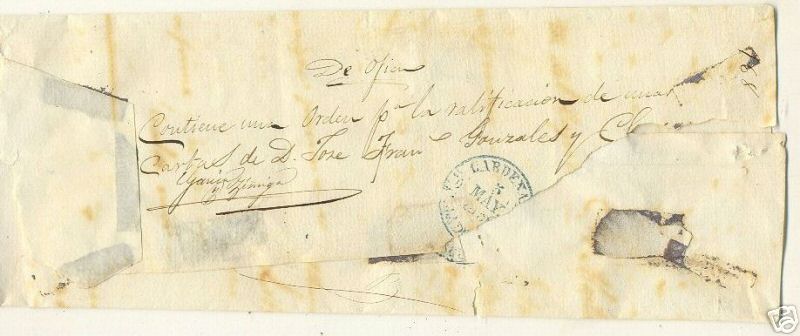 De Oficio
Contiene una Orden pa. la ratificacion de unas
Cartas de D. Jose Franco Gonzales y
Garcia Zuniga
CARDEN
5
MAY